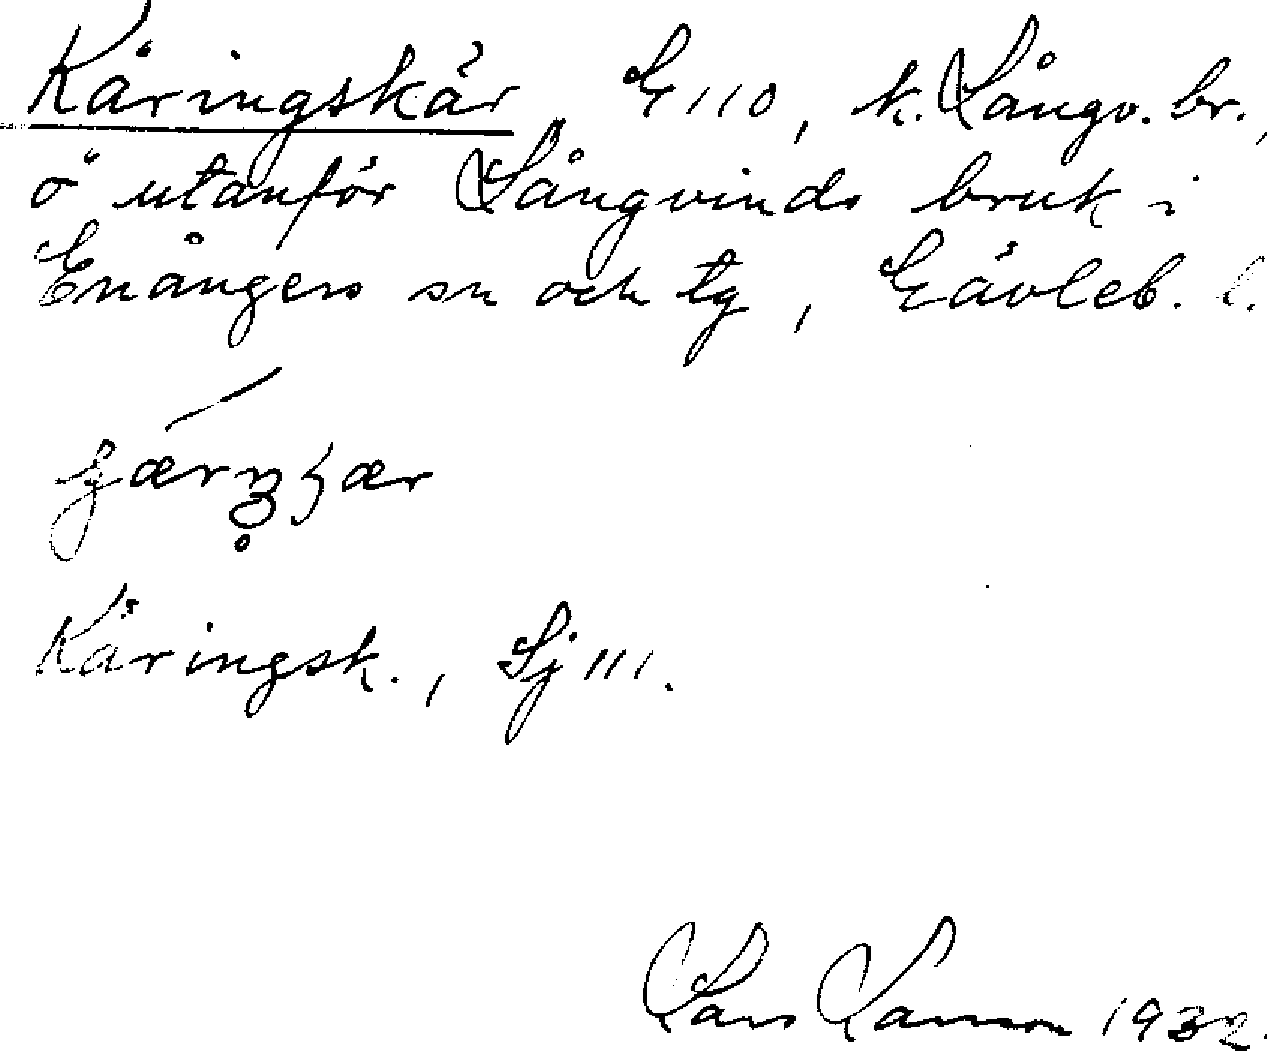 Käringskär, G 110, k. Långv. br.,
ö utanför Långvinds bruk i
Enångers sn och tg, Gävleb. l.
Käringsk., Sj 111.
Lars Larsson 1932.